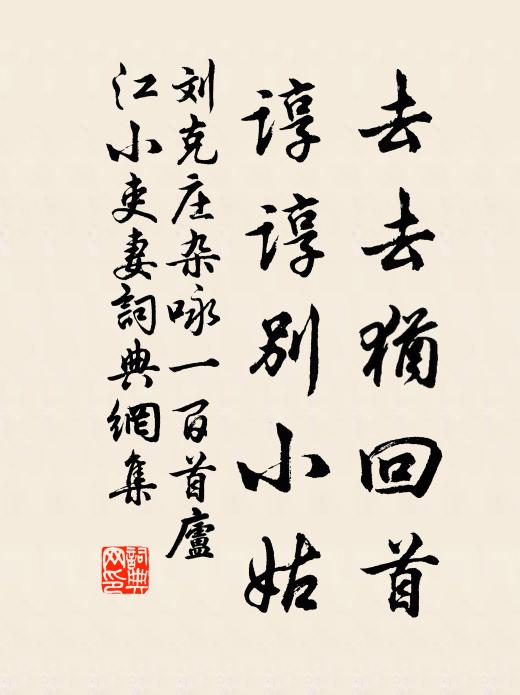 去去犹回首
谆谆别小姑
刘克庄杂咏一百首廬
江小吏妻詞典網集
詞典
网印